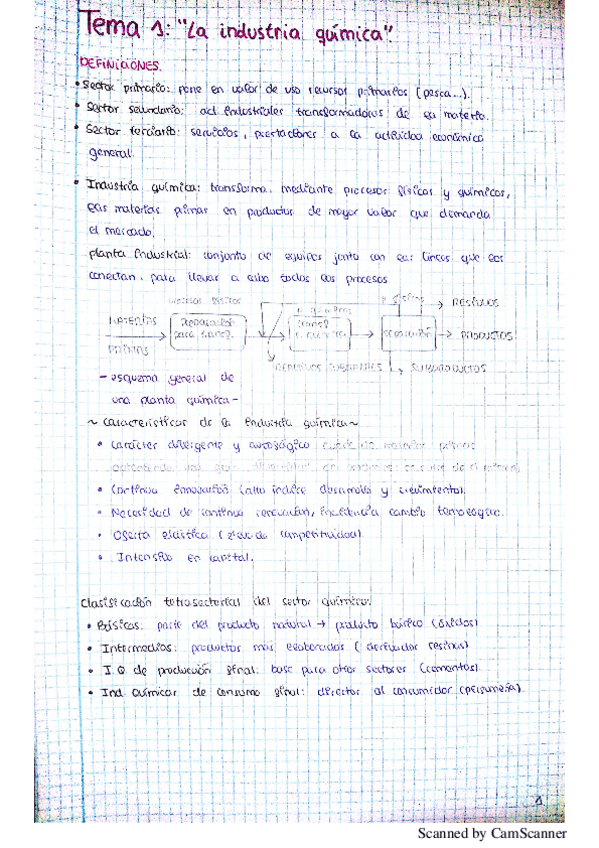 Tema 1: "La industria química"
DEFINICIONES.
• Sector primario: pone en valor de uso recursos primarios (pesca...).
• Sector secundario: act. industriales transformadores de la materia.
• Sector terciario: servicios, prestaciones a la actividad económica
general.
• Industria química: transforma, mediante procesos físicos y químicos,
las materias primas en productos de mayor valor que demanda
el mercado.
planta industrial: conjunto de equipos junto con las líneas que los
conectan, para llevar a cabo todos los procesos
→ RESIDUOS
MATERIAS
PRIMAS
preparación
para transf.
transf.
química
separación
→ PRODUCTOS
SUBPRODUCTOS
- esquema general de
una planta química -
~ características de la industria química ~
• Carácter divergente y
• Continua innovación (alto índice desarrollo y crecimiento).
• Necesidad de continua renovación, incidencia cambio tecnológico.
• Oferta elástica (elevada competitividad).
• Intensiva en capital.
Clasificación tetrasectorial del sector químico:
• Básicas: parte del producto natural → producto básico (óxidos)
• Intermedios: productos más elaborados (derivados resinas)
• I.Q. de producción final: base para otros sectores (cementos).
• Ind. Químicas de consumo final: directos al consumidor (perfumería).
1
Scanned by CamScanner